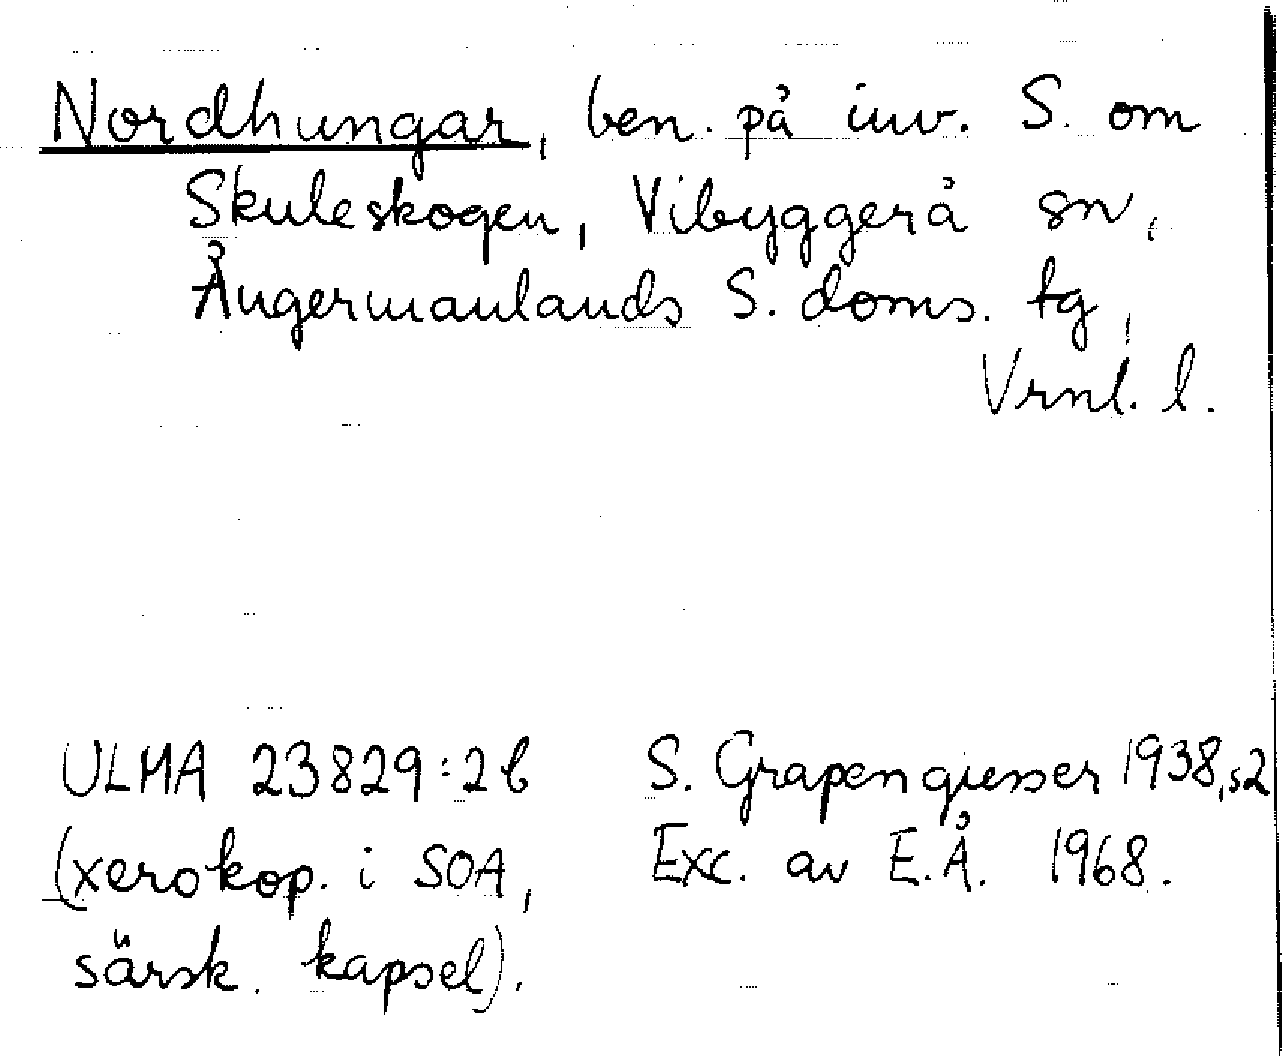 Nordhungar, ben. på inv. S. om
Skuleskogen, Vibyggerå sn,
Ångermanlands S. doms. tg,
Vrnl. l.
ULMA 23829:2b
(xerokop. i SOA,
särsk. kapsel).
S. Grapengiesser 1938, s2
Exc. av E.Å. 1968.